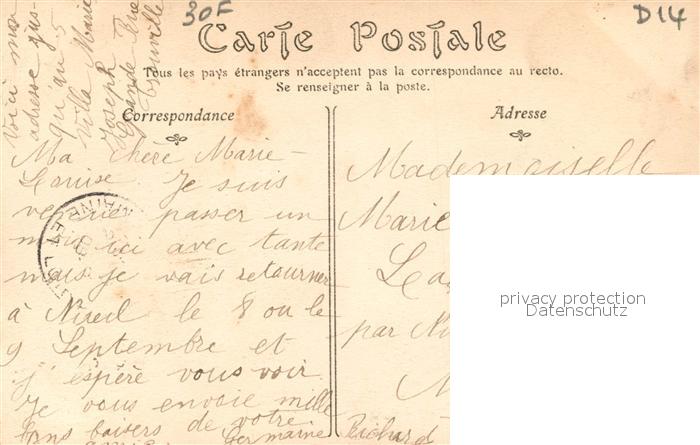 30F
D14
Carte Postale
Tous les pays étrangers n'acceptent pas la correspondance au recto.
Se renseigner à la poste.
Correspondance
Adresse
Voici mon
adresse jus-
qu'au 5
Villa Marie
Joseph
Grande Rue
Ma chère Marie-
Louise. Je suis
venue passer un
mois ici avec tante
mais je vais retourner
à Nueil le 8 ou le
9 Septembre et
j'espère vous voir
Je vous envoie mille
bons baisers de votre
amie Germaine Richard
Mademoiselle
Marie
par
MAINE ET LOIRE
privacy protection
Datenschutz